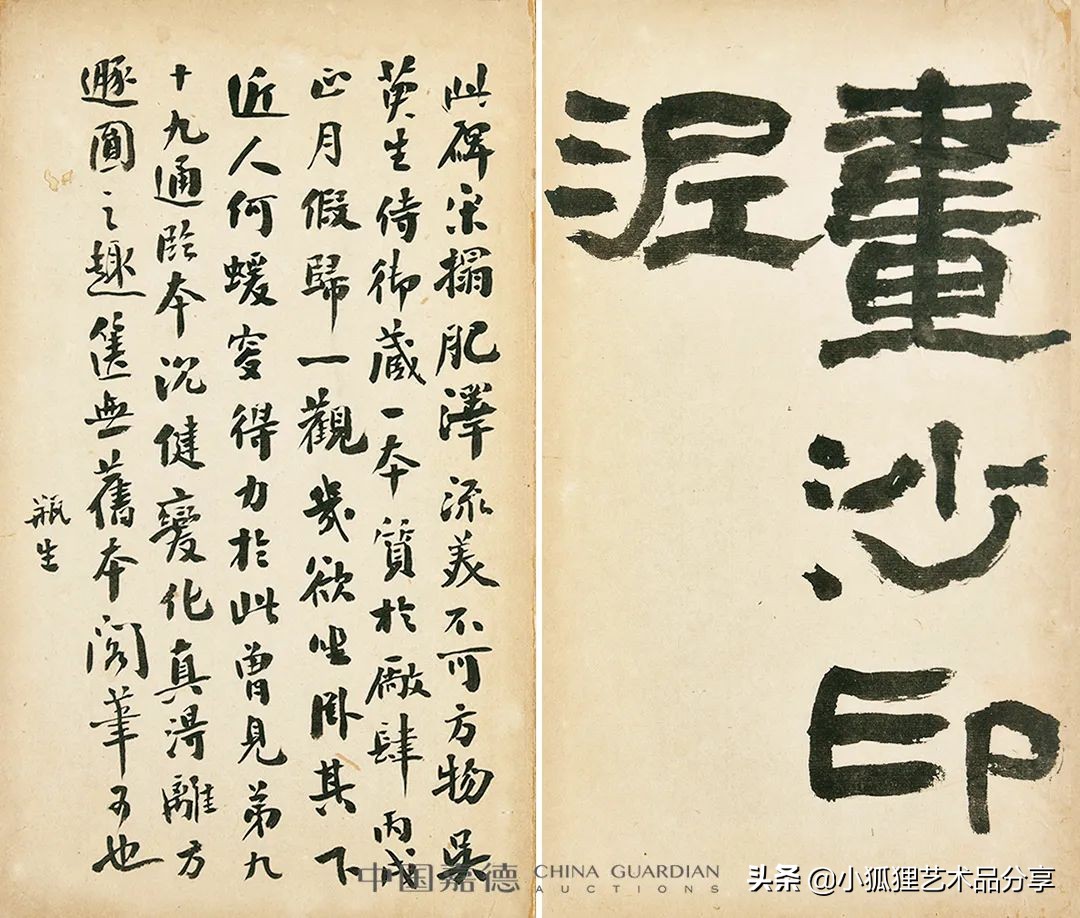 畫沙印
泥
此碑宋搨肥澤流美不可方物吳
生侍御藏一本質於廠肆丙戌
正月假歸一觀幾欲坐卧其下
近人何蝯叟得力於此曾見弟九
十九通臨本沉健變化真得離方
遯圓之趣篋無舊本閣筆可也
瓶生
中国嘉德 CHINA GUARDIAN
AUCTIONS
头条 @小狐狸艺术品分享